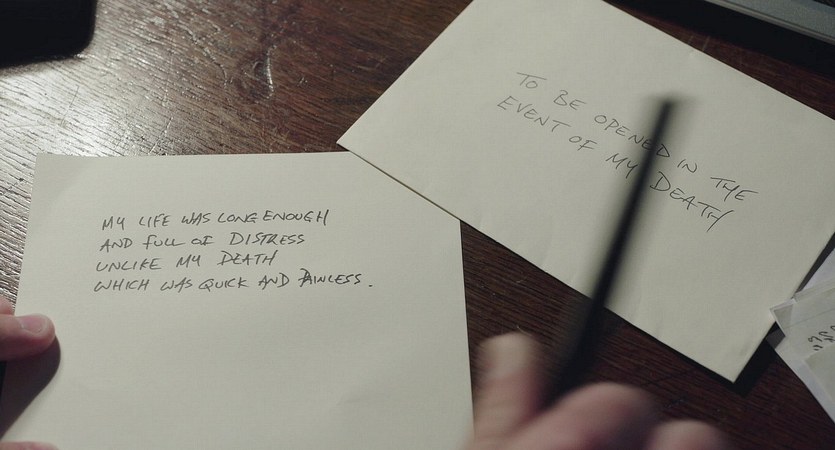 MY LIFE WAS LONG ENOUGH
AND FULL OF DISTRESS
UNLIKE MY DEATH
WHICH WAS QUICK AND PAINLESS.
TO BE OPENED IN THE
EVENT OF MY DEATH